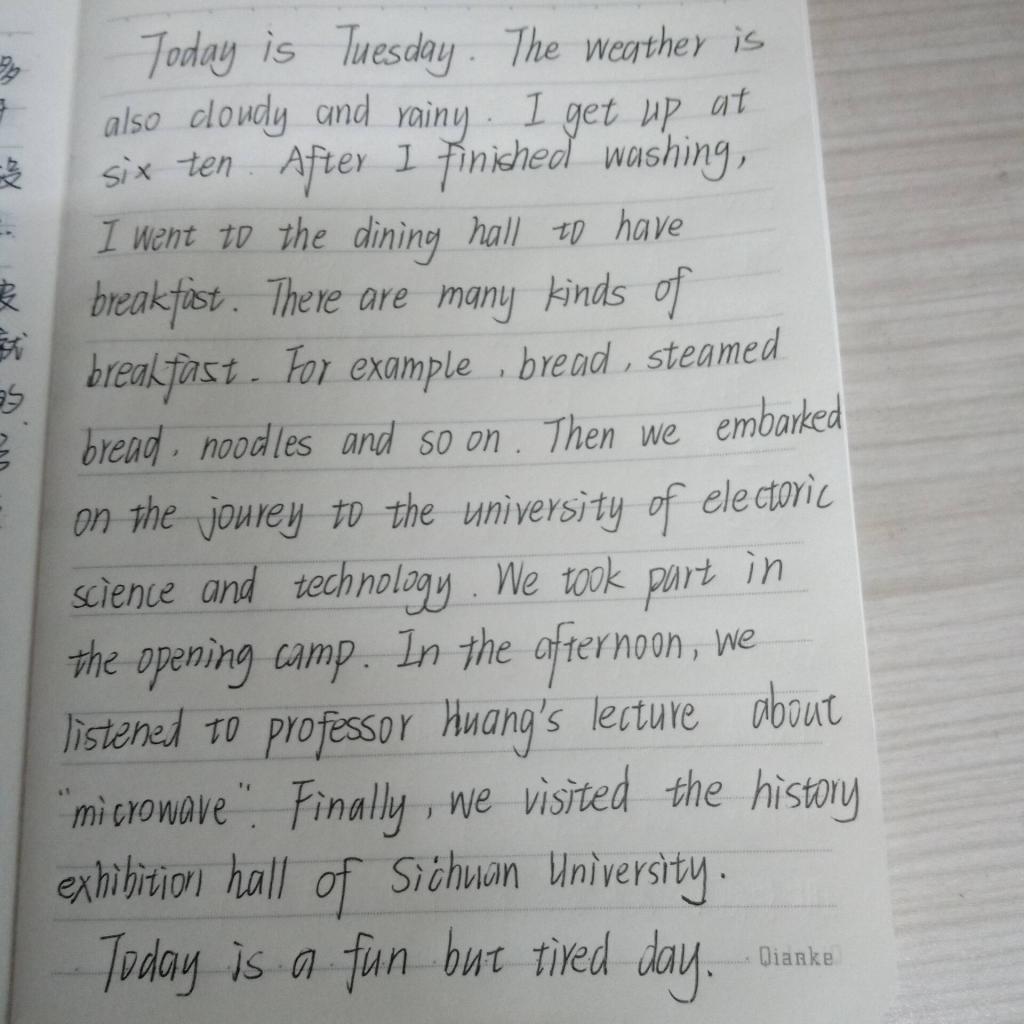 Today is Tuesday. The weather is
also cloudy and rainy. I get up at
six ten. After I finished washing,
I went to the dining hall to have
breakfast. There are many kinds of
breakfast. For example, bread, steamed
bread, noodles and so on. Then we embarked
on the jourey to the university of electoric
science and technology. We took part in
the opening camp. In the afternoon, we
listened to professor Huang's lecture about
"microwave". Finally, we visited the history
exhibition hall of Sichuan University.
Today is a fun but tired day.
Qianke